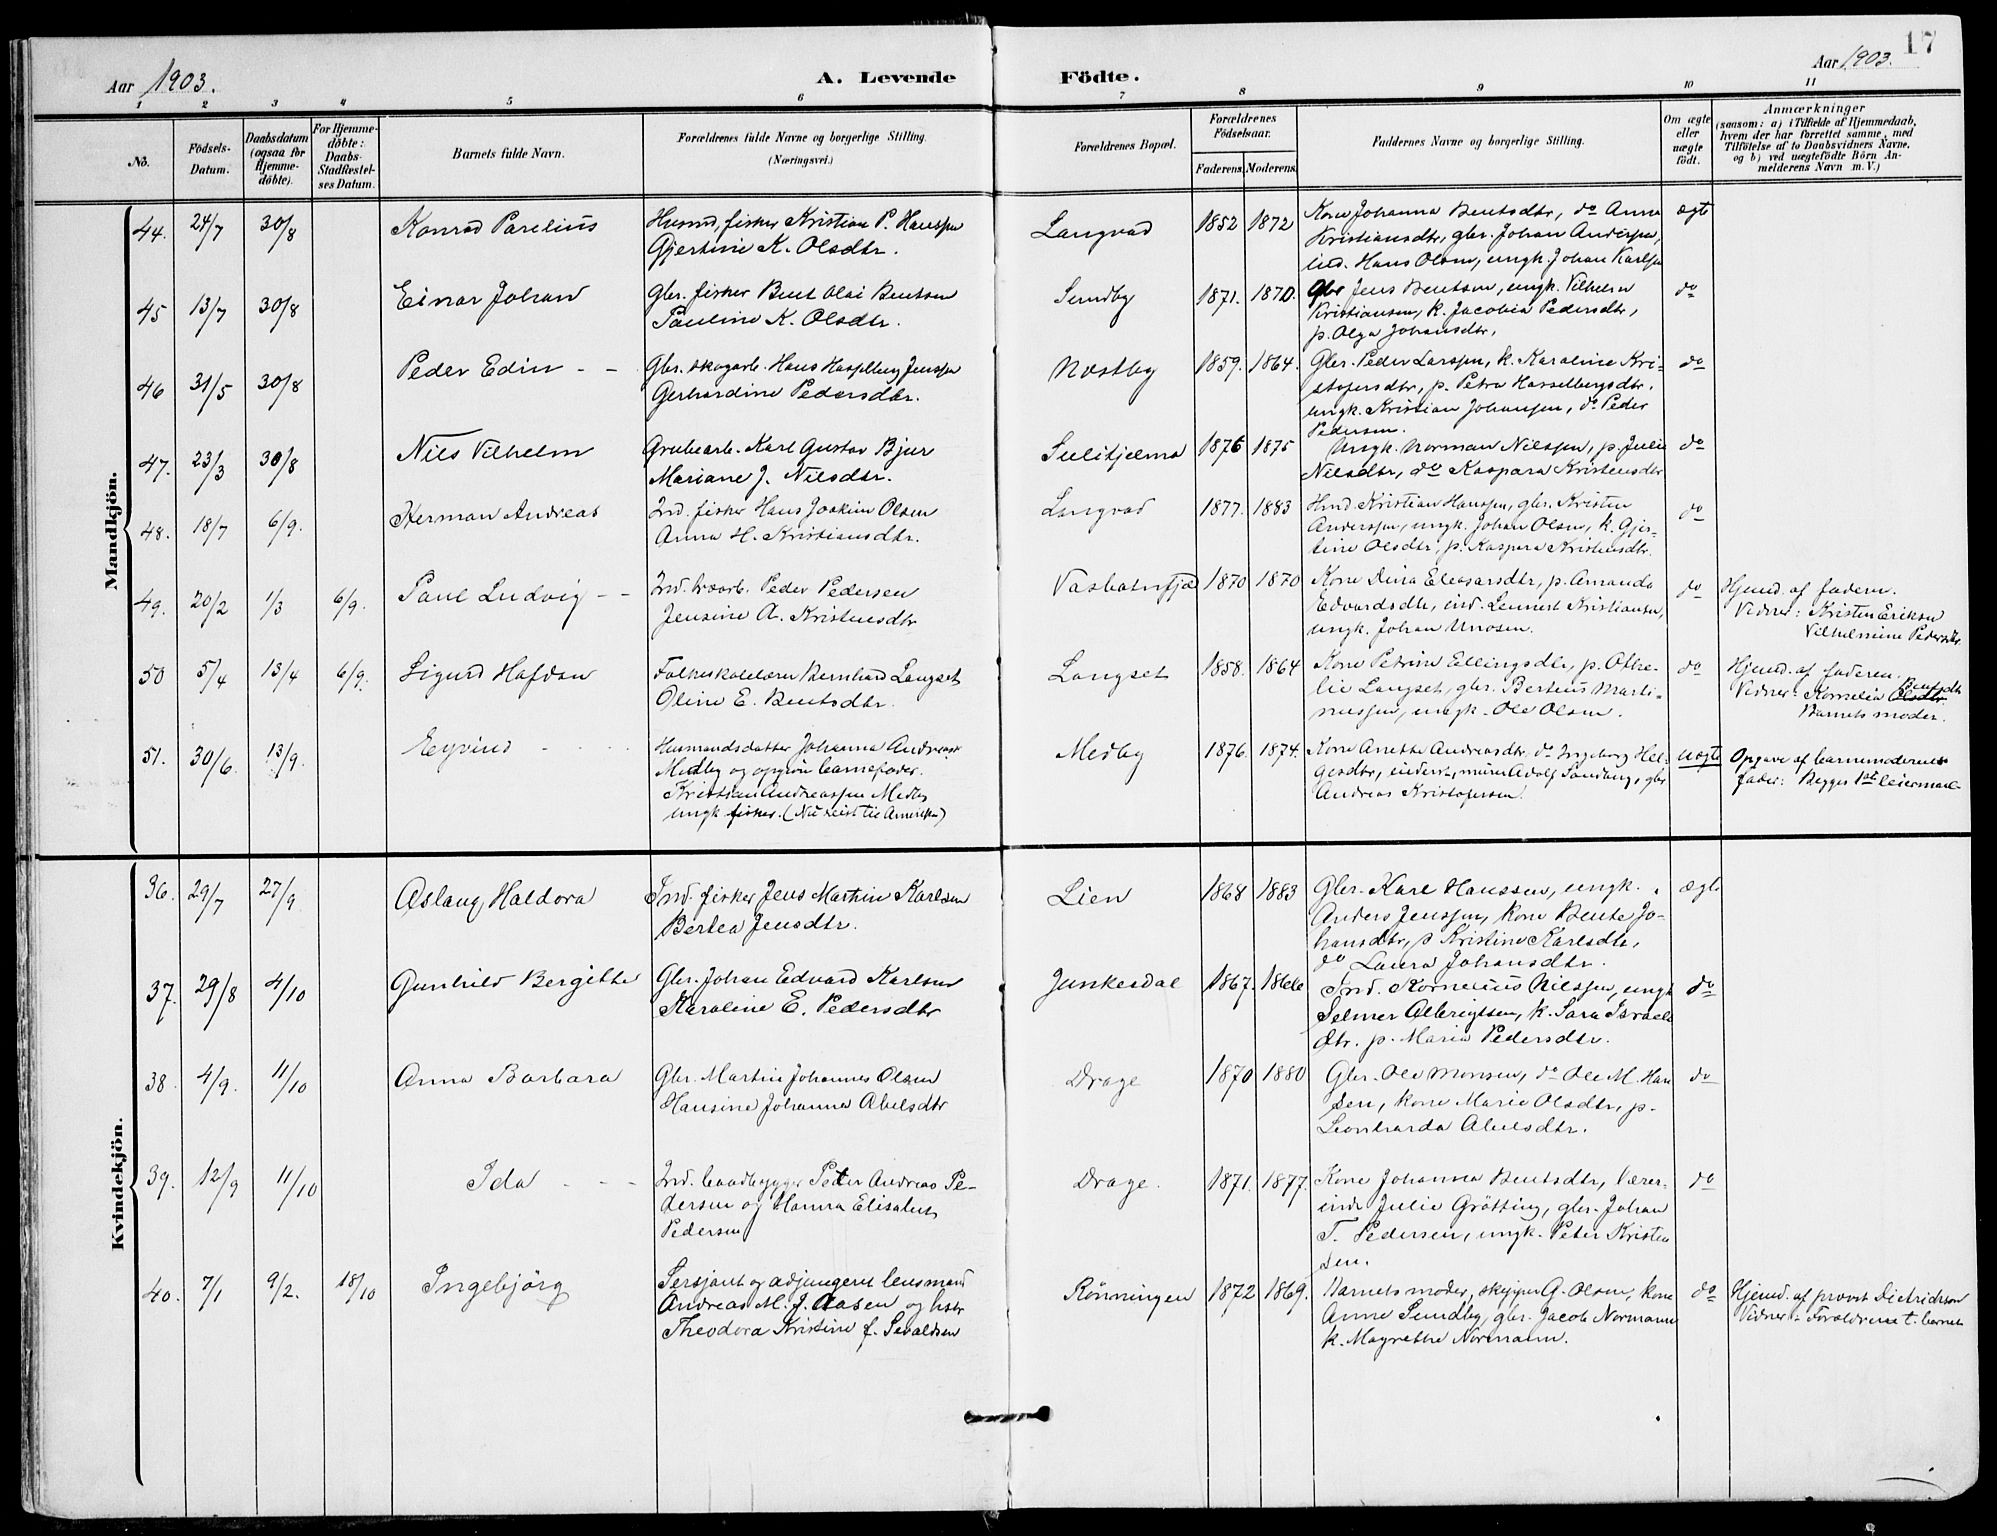 17
Aar 1903.
A. Levende Födte.
Aar 1903.
1 2 3 4 5 6 7 8 9 10 11
No.
Födsels-
Datum.
Daabsdatum
(ogsaa for
Hjemme-
döbte).
For Hjemme-
döbte:
Daabs-
Stadfæstel-
ses Datum.
Barnets fulde Navn.
Forældrenes fulde Navne og borgerlige Stilling.
(Næringsvei.)
Forældrenes Bopæl.
Forældrenes
Födselsaar.
Faderens. Moderens.
Faddernes Navne og borgerlige Stilling.
Om ægte
eller
uægte
födt.
Anmærkninger
(saasom: a) i Tilfælde af Hjemmedaab,
hvem der har forrettet samme, med
Tilföielse af to Daabsvidners Navne,
og b) ved uægtefödte Börn An-
melderens Navn m. V.)
Mandkjön.
44. 24/7 30/8 Konrad Parelius
Husmd, fisker Kristian P. Hanssen
Gjertine K. Olsdtr.
Langvad 1852 1872
Kone Johanna Bentsdtr, do Anna
Kristiansdtr, gbr. Johan Andersen,
ind. Hans Olsen, ungk. Johan Karlsen
ægte
45 13/7 30/8 Einar Johan
Gbr. fisker Bent Olai Bentsen
Pauline K. Olsdtr.
Sundby 1871. 1870.
Gbr Jens Bentsen, ungk. Vilhelm
Kristiansen, k. Jacobia Pedersdtr,
p. Olga Johansdtr,
do
46 31/5 30/8 Peder Edin - -
Gbr. skogarb. Hans Hasselberg Jenssen
Gerhardine Pedersdtr.
Næstby 1859. 1864.
Gbr. Peder Larssen, k. Karoline Kri-
stofersdtr, p. Petra Hasselbergsdtr.
ungk. Kristian Johansen, do Peder
Pedersen.
do
47. 23/3 30/8 Nils Vilhelm
Grubearb. Karl Gustav Bjur
Mariane J. Nilsdtr.
Sulitjelma 1876 1875
Ungk. Norman Nilssen, p. Julie
Nilsdtr, do Kaspara Kristensdtr
do
48. 18/7 6/9. Herman Andreas
Ind. fisker Hans Joakim Olsen
Anna H. Kristiansdtr.
Langvad 1877. 1883
Hmd. Kristian Hanssen, gbr. Kristen
Anderssen, ungk. Johan Olsen, k. Gjer-
tine Olsdtr, p. Kaspara Kristensdtr.
do
49. 20/2 1/3 6/9. Paul Ludvig - -
Ind. Peder Pedersen
Jensine A. Kristensdtr
1870 1870
Kone Dina Eleasarsdtr, p. Amanda
Edvardsdtr, ind. Lennert Kristiansen,
ungk. Johan Unosen.
do
Hjemd. af faderen.
Vidner: Kristen Eriksen
Vilhelmine Pedersdtr.
50 5/4 13/4 6/9. Sigurd Hafdan
Folkeskolelærer Bernhard Langset
Oline E. Bentsdtr.
Langset 1858. 1864
Kone Petrine Ellingsdtr, p. Othe-
lie Langset, gbr. Berteus Marti-
nussen, ungk. Ole Olsen.
do
Hjemd. af faderen.
Vidner: Kornelia Olsdtr. Bentsdtr
Barnets moder.
51. 30/6 13/9. Eyvind - - -
Husmandsdatter Johanna Andreasdtr
Medby og opgiven barnefader
Kristian Andreassen Medby
ungk. fisker. (Nu reist til Amerika)
Medby 1876. 1874.
Kone Anette Andreasdtr, do Ingeborg Hel-
gesdtr, inderst, murer Adolf Sandberg, gbr
Andreas Kristofersen.
uægte
Opgave af barnemoderens
fader: Begges 1st leiermaal
Kvindekjön.
36. 29/7 27/9 Aslaug Haldora
Ind. fisker Jens Martin Karlsen
Bertea Jensdtr.
Lien 1868 1883
Gbr. Karl Hanssen, ungk.
Anders Jenssen, kone Bente Jo-
hansdtr, p Kristine Karlsdtr,
do Laura Johansdtr.
ægte
37. 29/8 4/10 Gunhild Bergitte
Gbr. Johan Edvard Karlsen
Karoline E. Pedersdtr
Junkerdal 1867. 1866
Ind. Kornelius Nilssen, ungk
Selmer Albrigtsen, k. Sara Israels
dtr. p. Maria Pedersdtr.
do
38. 4/9. 11/10 Anna Barbara
Gbr. Martin Johannes Olsen
Hansine Johanna Abelsdtr
Drage 1870 1880
Gbr. Ole Monsen, do Ole M. Han
sen, kone Marie Olsdtr, p.
Leonharda Abelsdtr.
do
39. 12/9 11/10 Ida - - -
Ind. baadbygger Peter Andreas Pe-
dersen og Hanna Elisabet
Pedersen
Drage. 1871. 1877.
Kone Johanna Bentsdtr, lærer-
inde Julie Grötting, gbr. Johan
T. Pedersen, ungk. Peter Kristen
sen.
do
40. 7/1 9/2. 18/10 Ingebjörg
Sersjant og adjungeret lensmand
Andreas M. J. Aasen og hstr
Theodora Kristine f. Sevaldsen
Rönningen 1872 1869.
Barnets moder, skipper G. Olsen, kone
Anne Sundby, gbr. Jacob Normann
k. Magrethe Normann.
do
Hjemd. af provst Dietrichson
Vidner: Forældrene t. barnet